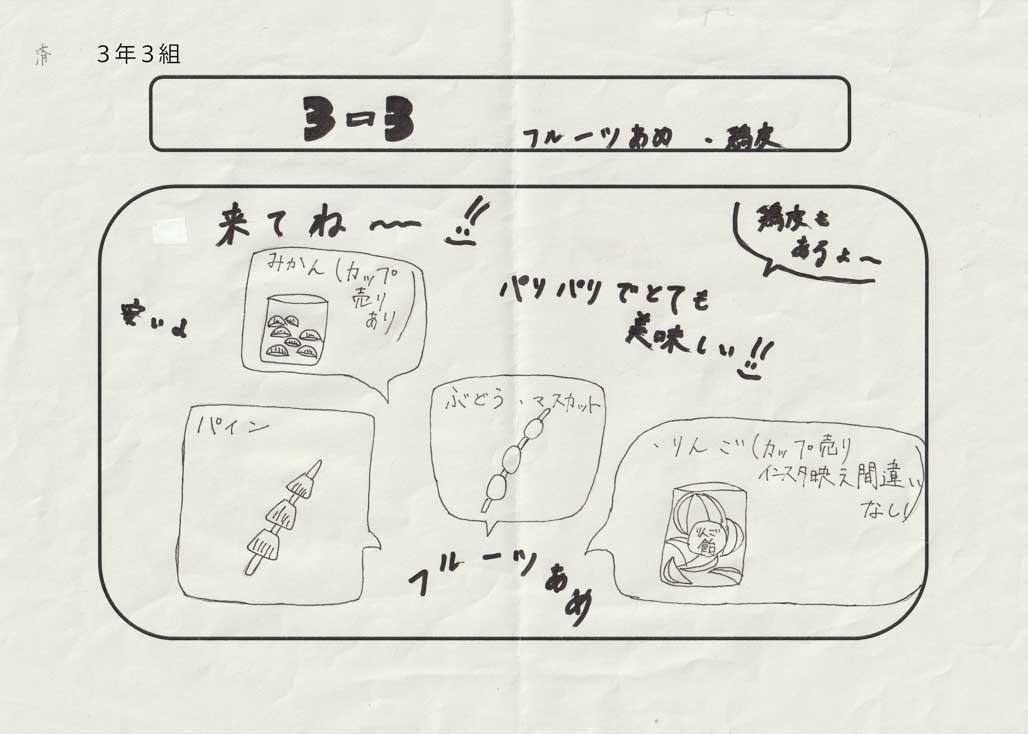 済
3年3組
3-3
フルーツあめ・鶏皮
来てね〜!!
鶏皮も
あるよ〜
みかん(カップ
売り
あり)
安いよ
パリパリでとても
美味しい!!
パイン
ぶどう、マスカット
・りんご(カップ売り
インスタ映え間違い
なし!)
りんご
飴
フルーツあめ